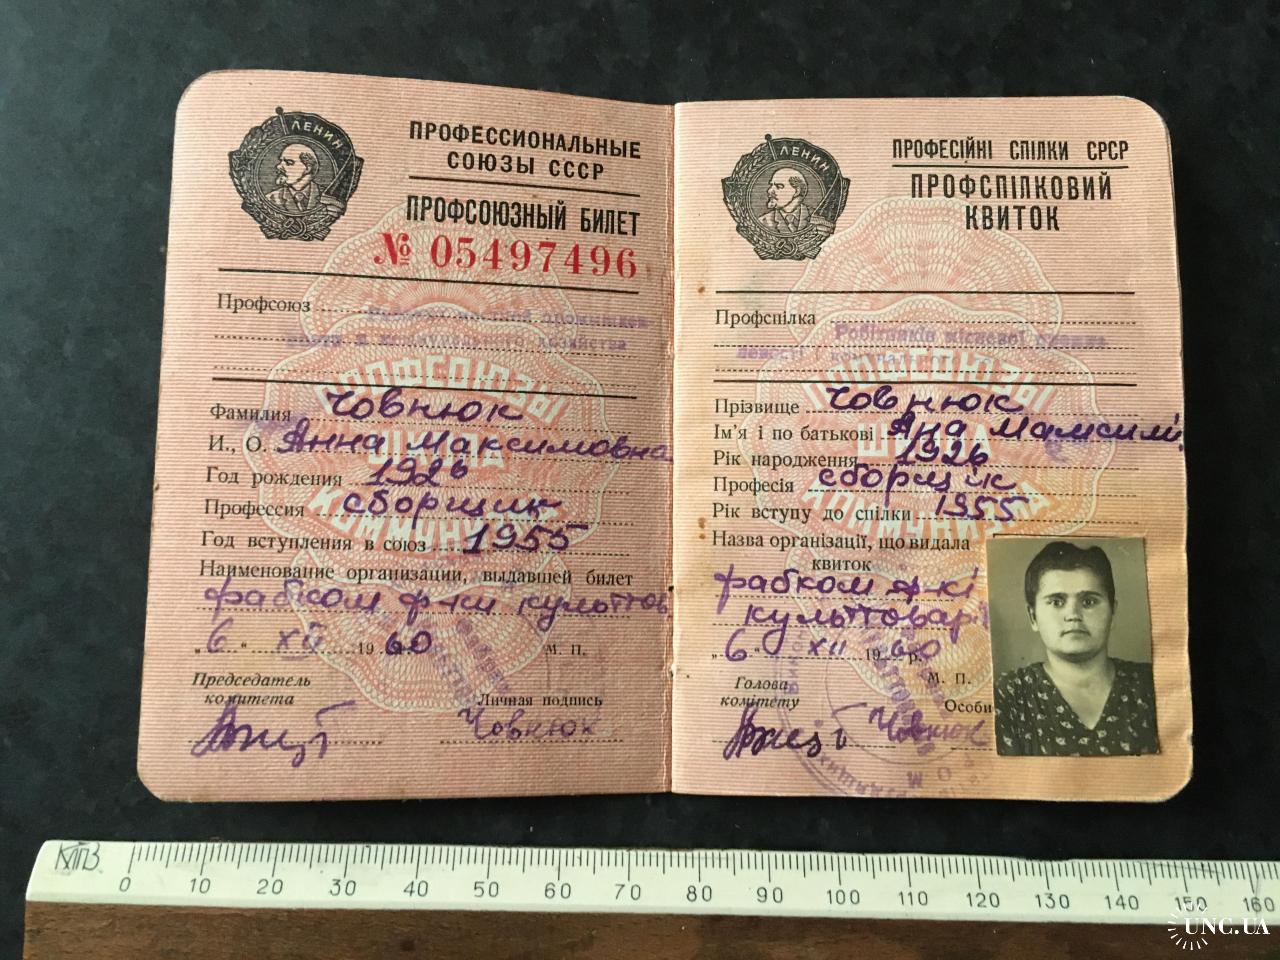 ЛЕНИН
ПРОФЕССИОНАЛЬНЫЕ
СОЮЗЫ СССР
ПРОФСОЮЗНЫЙ БИЛЕТ
№ 05497496
Профсоюз
хозяйства
ПРОФСОЮЗЫ
ШКОЛА
КОММУНИЗМА
Фамилия Човнюк
И., О. Анна Максимовна
Год рождения 1926
Профессия сборщик
Год вступления в союз 1955
Наименование организации, выдавшей билет
фабком ф-ки культтов
„6“ XII 1960 М. П.
Председатель
комитета
Личная подпись
Човнюк
ЛЕНИН
ПРОФЕСІЙНІ СПІЛКИ СРСР
ПРОФСПІЛКОВИЙ
КВИТОК
Профспілка
Робітників місцевої
ПРОФСОЮЗЫ
ШКОЛА
КОММУНИЗМА
Прізвище Човнюк
Ім'я і по батькові
Рік народження 1926
Професія сборщік
Рік вступу до спілки 1955
Назва організації, що видала
квиток
фабком ф-кі
культтоварі
„6“ XII 1960 р.
М. П.
Голова
комитету
Особи
Човнюк
0 10 20 30 40 50 60 70 80 90 100 110 120 130 140 150 160
UNC.UA